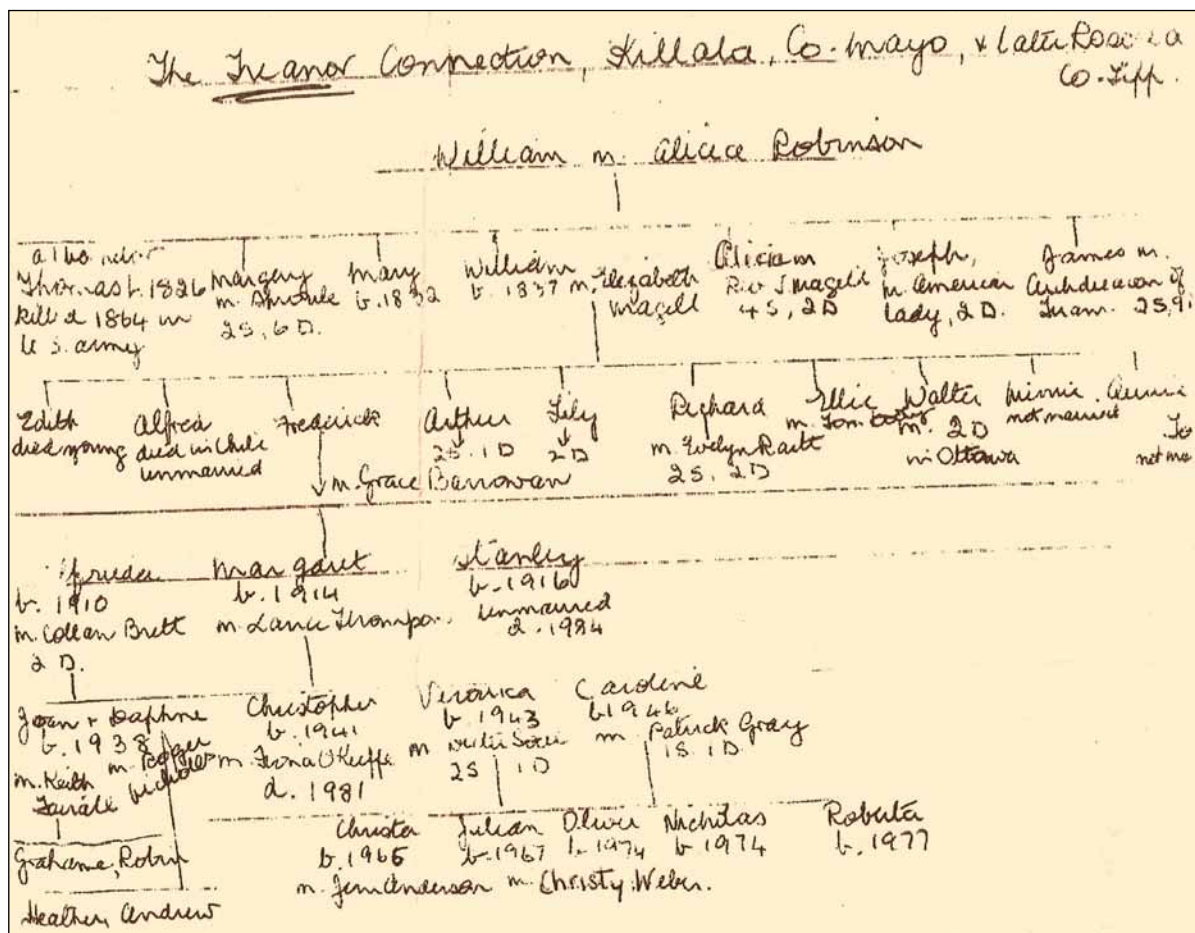 The Treanor Connection, Killala, Co. Mayo, & later Rosc
Co. Tipp.
William m. Alicia Robinson
Thomas b. 1826
killed 1864 in
U.S. army
Margery
m. Sproule
2S, 6D.
Mary
b. 1832
William
b. 1837 m. Elizabeth
Magill
Alicia m
Rev J. Magill
4S, 2D
Joseph,
m. American
lady, 2 D.
James m.
Archdeacon of
Tuam. 2S,
Edith
died young
Alfred
died in Chile
unmarried
Frederick
m. Grace Barrowan
Arthur
2S. 1D
Lily
2D
Richard
m. Evelyn Raitt
2S, 2D
Ellie
m. Tom
Walter
m. 2D
in Ottawa
Minnie
not married
Annie
not ma
Frieda
b. 1910
m. Collan Brett
2 D.
Margaret
b. 1914
m. Lance Thompson
Stanley
b. 1916
unmarried
d. 1984
Joan & Daphne
b. 1938
m. Keith
m. Roger
Christopher
b. 1941
m. Fiona O'Keeffe
d. 1981
Veronica
b. 1943
m
2S 1D
Caroline
b 1946
m. Patrick Gray
1S. 1D.
Grahame, Robin
Heather, Andrew
Christa
b. 1965
m. Jem Anderson
Julian
b. 1967
m. Christy Weber.
Oliver
b. 1974
Nicholas
b 1974
Roberta
b. 1977